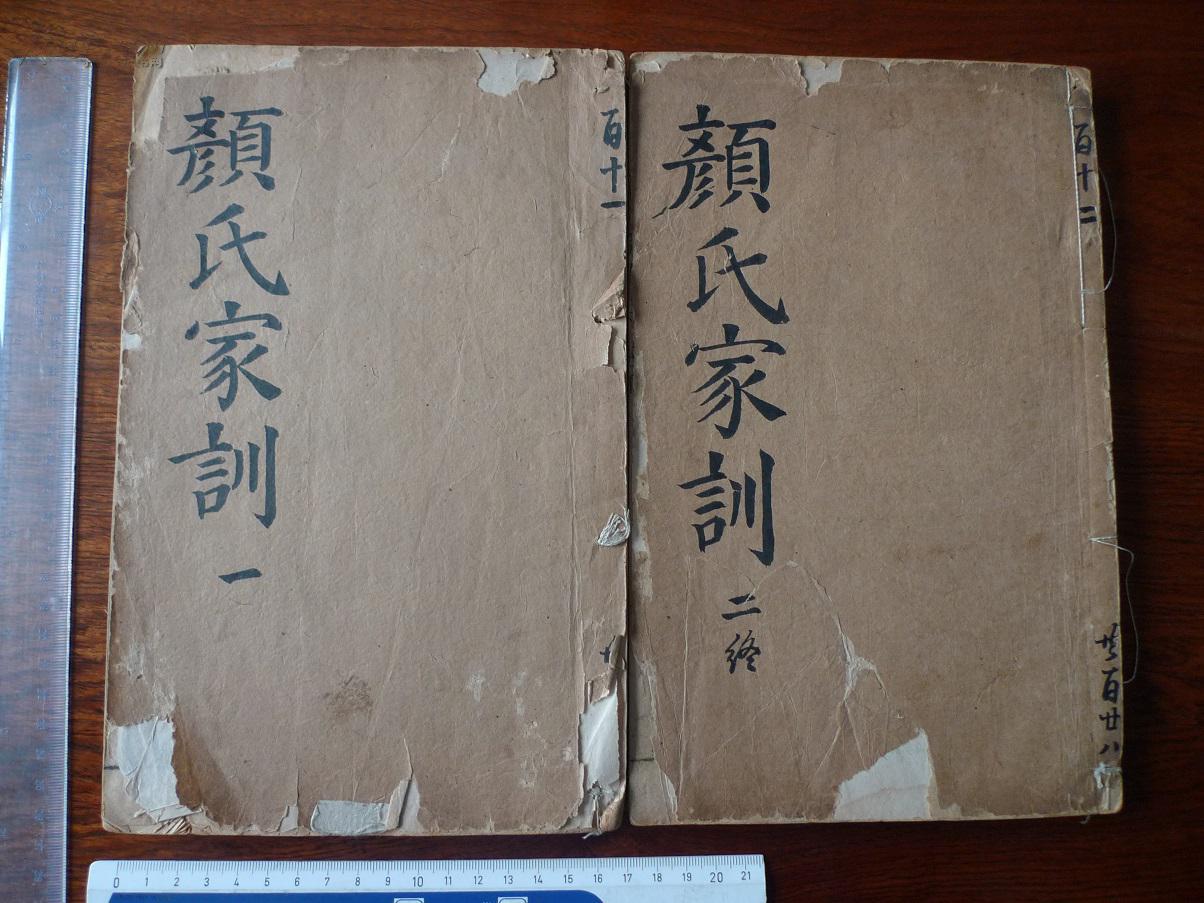 顏氏家訓
一
百十一
顏氏家訓
二終
百十二
共百廿八
0 1 2 3 4 5 6 7 8 9 10 11 12 13 14 15 16 17 18 19 20 21